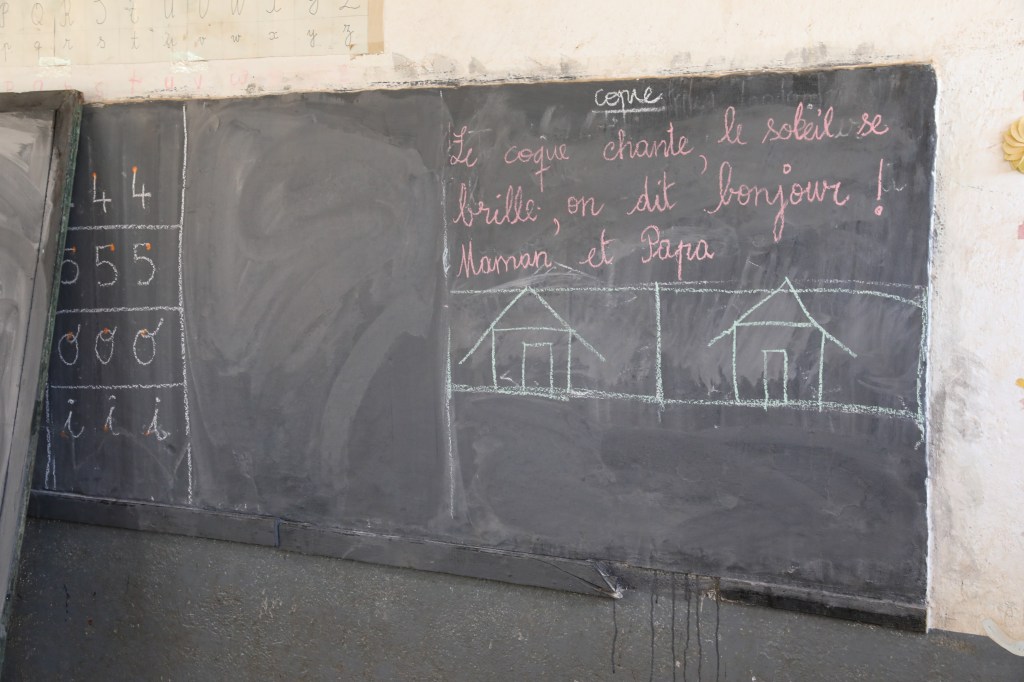 P Q R S T U V W X Y Z
p q r s t u v w x y z
4 4
5 5 5
o o o
i i i
copie
Le coque chante, le soleil se
brille, on dit bonjour !
Maman et Papa